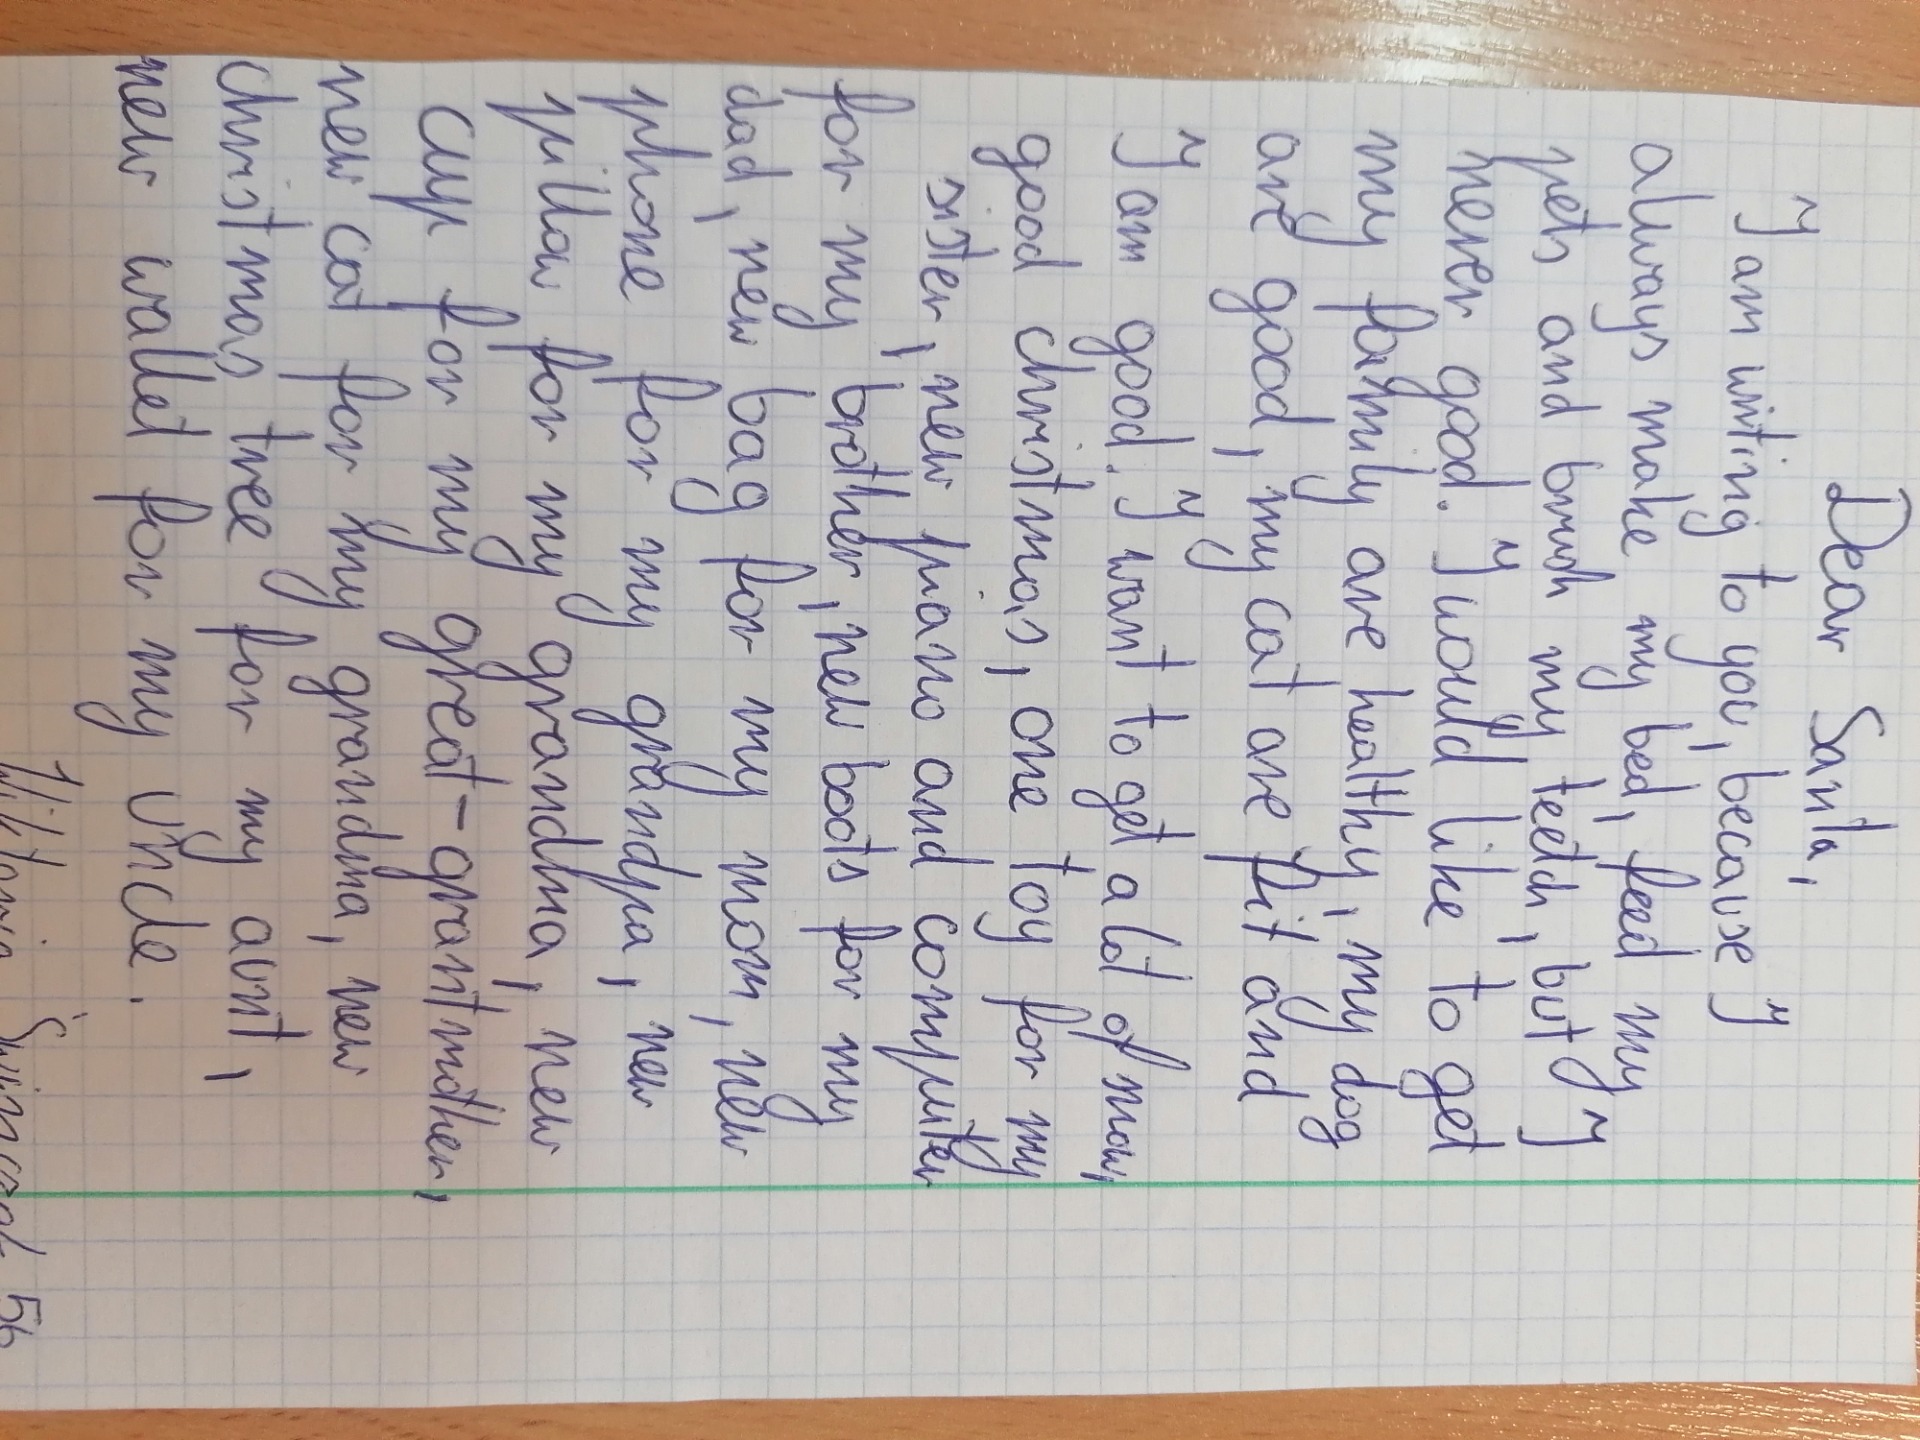 Dear Santa,
I am writing to you, because I
always make my bed, feed my
pets and brush my teeth, but I
never good. I would like to get
my fagmily are healthy, my dog
are good, my cat are fit and
I am good. I want to get a lot of snow,
good christmas, one toy for my
sister, new piano and computer
for my brother, new boots for my
dad, new bag for my mom, new
phone for my grandpa, new
pillow for my grandma, new
cup for my great-grantmother,
new cat for my grandma, new
christmas tree for my aunt,
new wallet for my uncle.
Wiktoria 5b